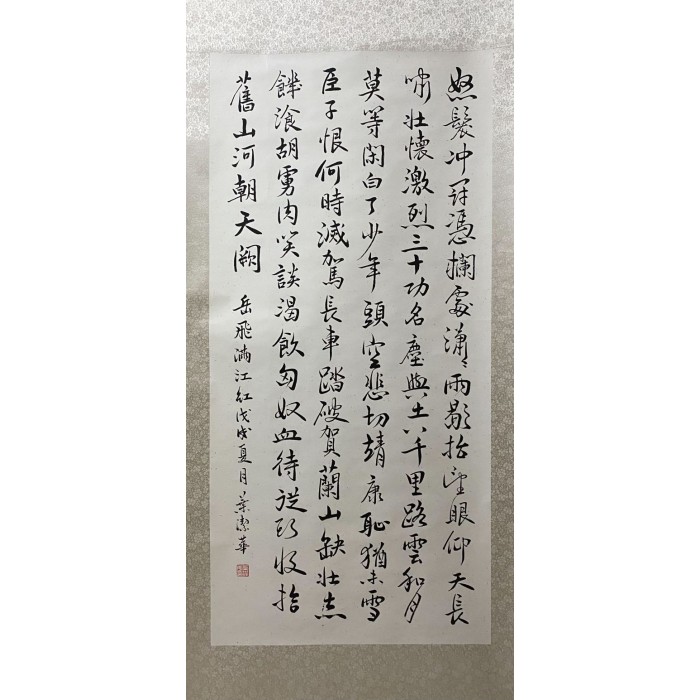 怒髮冲冠憑欄處瀟瀟雨歇抬望眼仰天長
嘯壯懷激烈三十功名塵與土八千里路雲和月
莫等閑白了少年頭空悲切靖康恥猶未雪
臣子恨何時滅駕長車踏破賀蘭山缺壯志
饑飡胡虜肉笑談渴飲匈奴血待從頭收拾
舊山河朝天闕
岳飛滿江紅戊戌夏月葉潔華